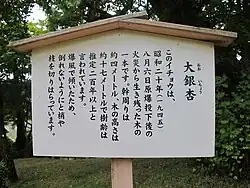 大銀杏
おお いちょう
このイチョウは、
昭和二十年(一九四五)
八月六日原爆投下後の
火災から生き残った木の
一本です。幹周りは
約四メートル 木の高さは
約十七メートルで樹齢は
推定二百年以上と
言われています。
爆風で傾いたため、
倒れないようにと梢や
枝を切りはらっています。